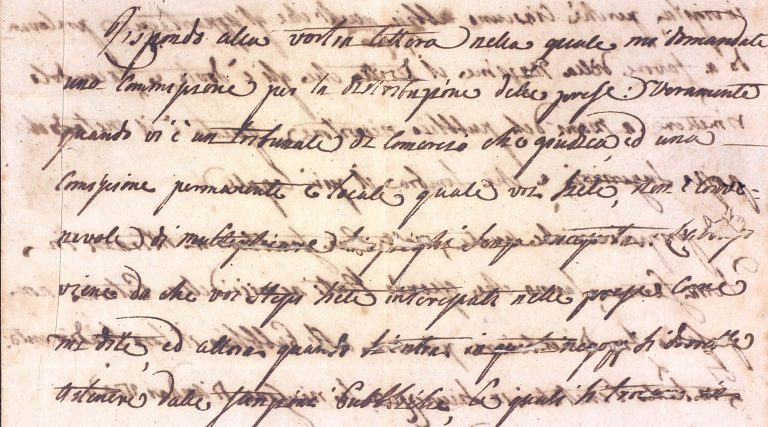 Rispondo alla vostra lettera nella quale mi domandate
una Commissione per la distribuzione delle prese. Veramente
quando vi è un tribunale di Comercio che giudica, ed una
Comissione permanente e locale quale voi siete, non è conve-
nevole di multiplicare senza necessità.
viene da che voi stessi siete interessati nelle prese come
mi dite, ed allora quando si entra in negozj si dovrebbe
astenere dalle funzioni Pubbliche, le quali si trovano